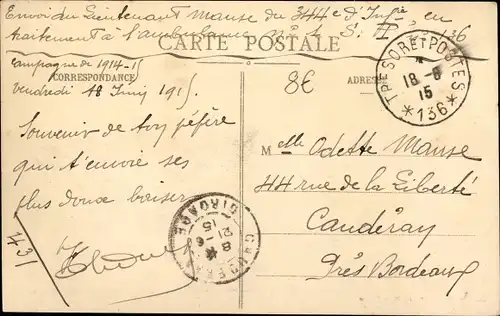 Envoi du Lieutenant Manse du 344e d'Infie, en
traitement à l'ambulance S. P. 136
CARTE POSTALE
Campagne de 1914-15
CORRESPONDANCE
ADRESSE
8€
Vendredi 18 Juin 1915.
TRESOR ET POSTES
18-6
15
*136*
Souvenir de ton pépère
qui t'envoie ses
plus doux baisers
Melle Odette Manse
44 rue de la Liberté
Caudéran
Près Bordeaux
CAUDERAN
8 *
21-6
15
GIRONDE
431